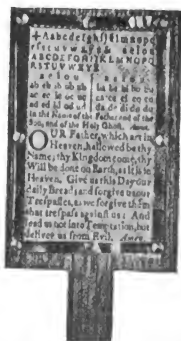 +Aabcdefghijklmnopq
rſstuvwxyz& aeiou
ABCDEFGHIJKLMNOPQ
RSTUVWXYZ
a e i o u
ab eb ib ob ub
ac ec ic oc uc
ad ed id od ud
ba be bi bo bu
ca ce ci co cu
da de di do du
In the Name of the Father and of the
Son, and of the Holy Ghoſt. Amen.
OUR Father, which art in
Heaven, hallowed be thy
Name; thy Kingdom come, thy
Will be done on Earth, as it is in
Heaven. Give us this Day our
daily Bread; and forgive us our
Treſpaſſes, as we forgive them
that treſpaſs againſt us: And
lead us not into Temptation, but
deliver us from Evil. Amen.